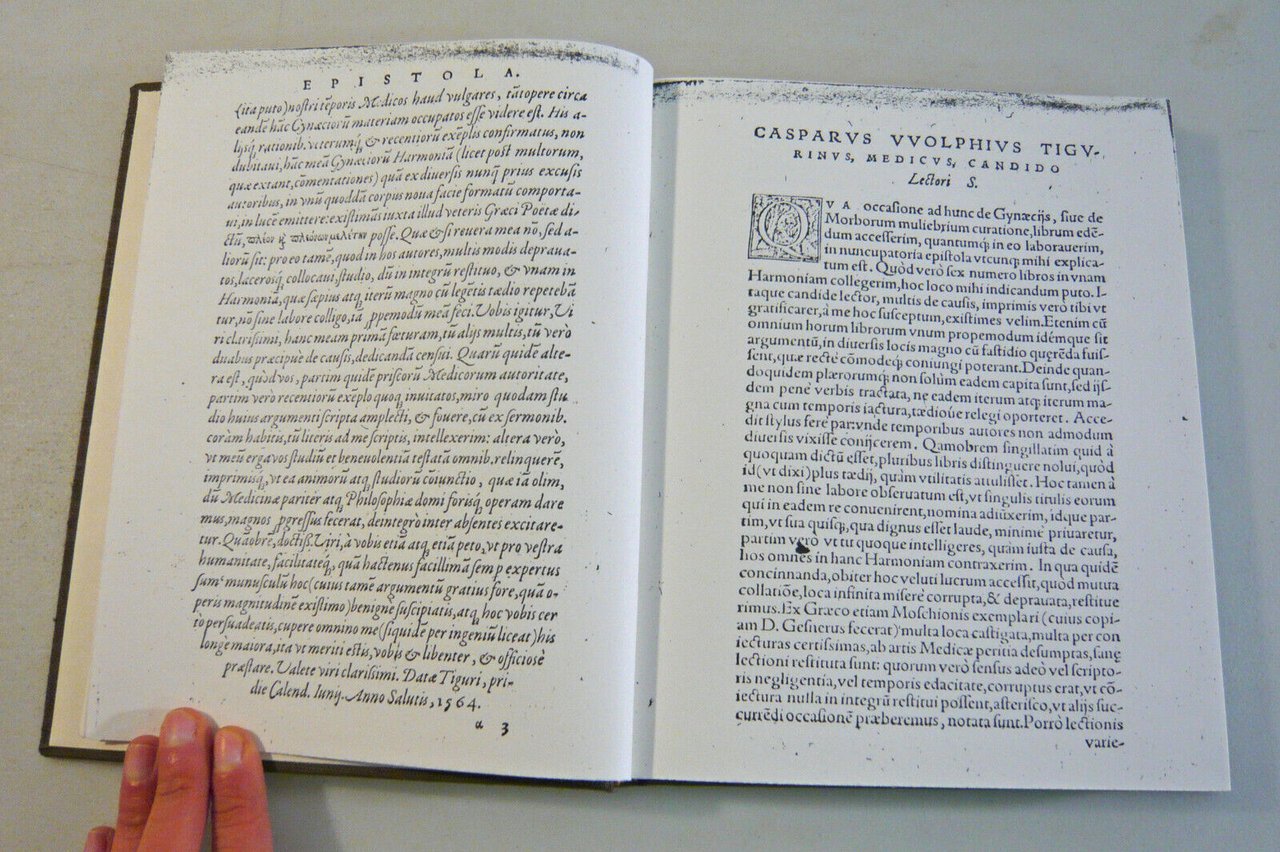 EPISTOLA.
(ita puto) nostri tẽporis Medicos haud vulgares, tãtopere circa
eandẽ hãc Gynæciorũ materiam occupatos esse videre est. His a-
lijsq́, rationib. veterumq́, & recentiorũ exẽplis confirmatus, non
dubitaui, hãc meã Gynæciorũ Harmoniã (licet post multorum,
quæ extant, cõmentationes) quã ex diversis nunq̃ prius excusis
autoribus, in vnũ quoddã corpus noua facie formatũ comporta-
ui, in lucẽ emittere: existimãs iuxta illud veteris Græci Poetæ di-
ctũ, posse. Quæ & si reuera mea nõ, sed a-
liorũ sit: pro eo tamẽ, quod in hos autores, multis modis depraua-
tos, lacerosq́, collocaui, studio, dũ in integrũ restituo, & vnam in
Harmoniã, quæ sæpius atq, iterũ magno cũ legẽtis tædio repetebã
tur, nõ sine labore colligo, iã ꝓpemodũ meã feci. Vobis igitur, Vi
ri clarissimi, hanc meam primã fœturam, tũ alijs multis, tũ verò
duabus præcipuè de causis, dedicandã censui. Quarũ quidẽ alte-
ra est, quòd vos, partim quidẽ priscorũ Medicorum autoritate,
partim verò recentiorũ exẽplo quoq, inuitatos, miro quodam stu
dio huius argumenti scripta amplecti, & fouere, cũ ex sermonib.
coràm habitis, tũ literis ad me scriptis, intellexerim: altera verò,
vt meũ erga vos studiũ et beneuolentiã testatã omnib. relinquerẽ,
imprimisq́, vt ea animorũ atq, studiorũ cõiunctio, quæ iã olim,
dũ Medicinæ pariter atq, Philosophiæ domi forisq́, operam dare
mus, magnos ꝓgressus fecerat, deintegrò inter absentes excitare-
tur. Quãobrẽ, doctiss. Viri, à vobis etiã atq, etiã peto, vt pro vestra
humanitate, facilitateq́, quã hactenus facillimã semp expertus
sum munusculũ hoc (cuius tamẽ argumentũ gratius fore, quã o-
peris magnitudinẽ existimo) benignè suscipiatis, atq, hoc vobis cer
tò persuadeatis, cupere omnino me (siquidẽ per ingeniũ liceat) his
longè maiora, ita vt meriti estis, vobis & libenter, & officiosè
præstare. Valete viri clarissimi. Datæ Tiguri, pri-
die Calend. Iunij. Anno Salutis, 1564.
a 3
CASPARVS VVOLPHIVS TIGV-
RINVS, MEDICVS, CANDIDO
Lectori S.
QVA occasione ad hunc de Gynæcijs, siue de
Morborum muliebrium curatione, librum edẽ-
dum accesserim, quantumq́; in eo laborauerim,
in nuncupatoria epistola vtcunq; mihi explica-
tum est. Quòd verò sex numero libros in vnam
Harmoniam collegerim, hoc loco mihi indicandum puto. I-
taque candide lector, multis de causis, imprimis verò tibi vt
gratificarer, à me hoc susceptum, existimes velim. Etenim cũ
omnium horum librorum vnum propemodum idémque sit
argumentũ, in diuersis locis magno cũ fastidio querẽda fuis-
sent, quæ rectè cõmodeq; coniungi poterant. Deinde quan-
doquidem plærorumq; non solùm eadem capita sunt, sed ijs-
dem penè verbis tractata, ne eadem iterum atq; iterum ma-
gna cum temporis iactura, tædioúe relegi oporteret. Acce-
dit stylus ferè par: vnde temporibus autores non admodum
diuersis vixisse conijcerem. Qamobrem singillatim quid à
quoquam dictũ esset, pluribus libris distinguere nolui, quòd
id (vt dixi) plus tædij, quàm vtilitatis attulisset. Hoc tamen à
me non sine labore obseruatum est, vt singulis titulis eorum
qui in eadem re conuenirent, nomina adiũxerim, idque par-
tim, vt sua quisq;, qua dignus esset laude, minimè priuaretur,
partim verò vt tu quoque intelligeres, quàm iusta de causa,
hos omnes in hanc Harmoniam contraxerim. In qua quidẽ
concinnanda, obiter hoc veluti lucrum accessit, quòd mutua
collatiõe, loca infinita miserè corrupta, & deprauata, restitue
rimus. Ex Græco etiam Moschionis exemplari (cuius copi-
am D. Gesnerus fecerat) multa loca castigata, multa per con
iecturas certissimas, ab artis Medicæ peritia desumptas, sanę
lectioni restituta sunt: quorum verò sensus adeò vel scripto-
ris negligentia, vel temporis edacitate, corruptus erat, vt cõ-
iectura nulla in integrũ restitui possent, asterisco, vt alijs suc-
currẽdi occasionẽ præberemus, notata sunt. Porrò lectionis
varie-